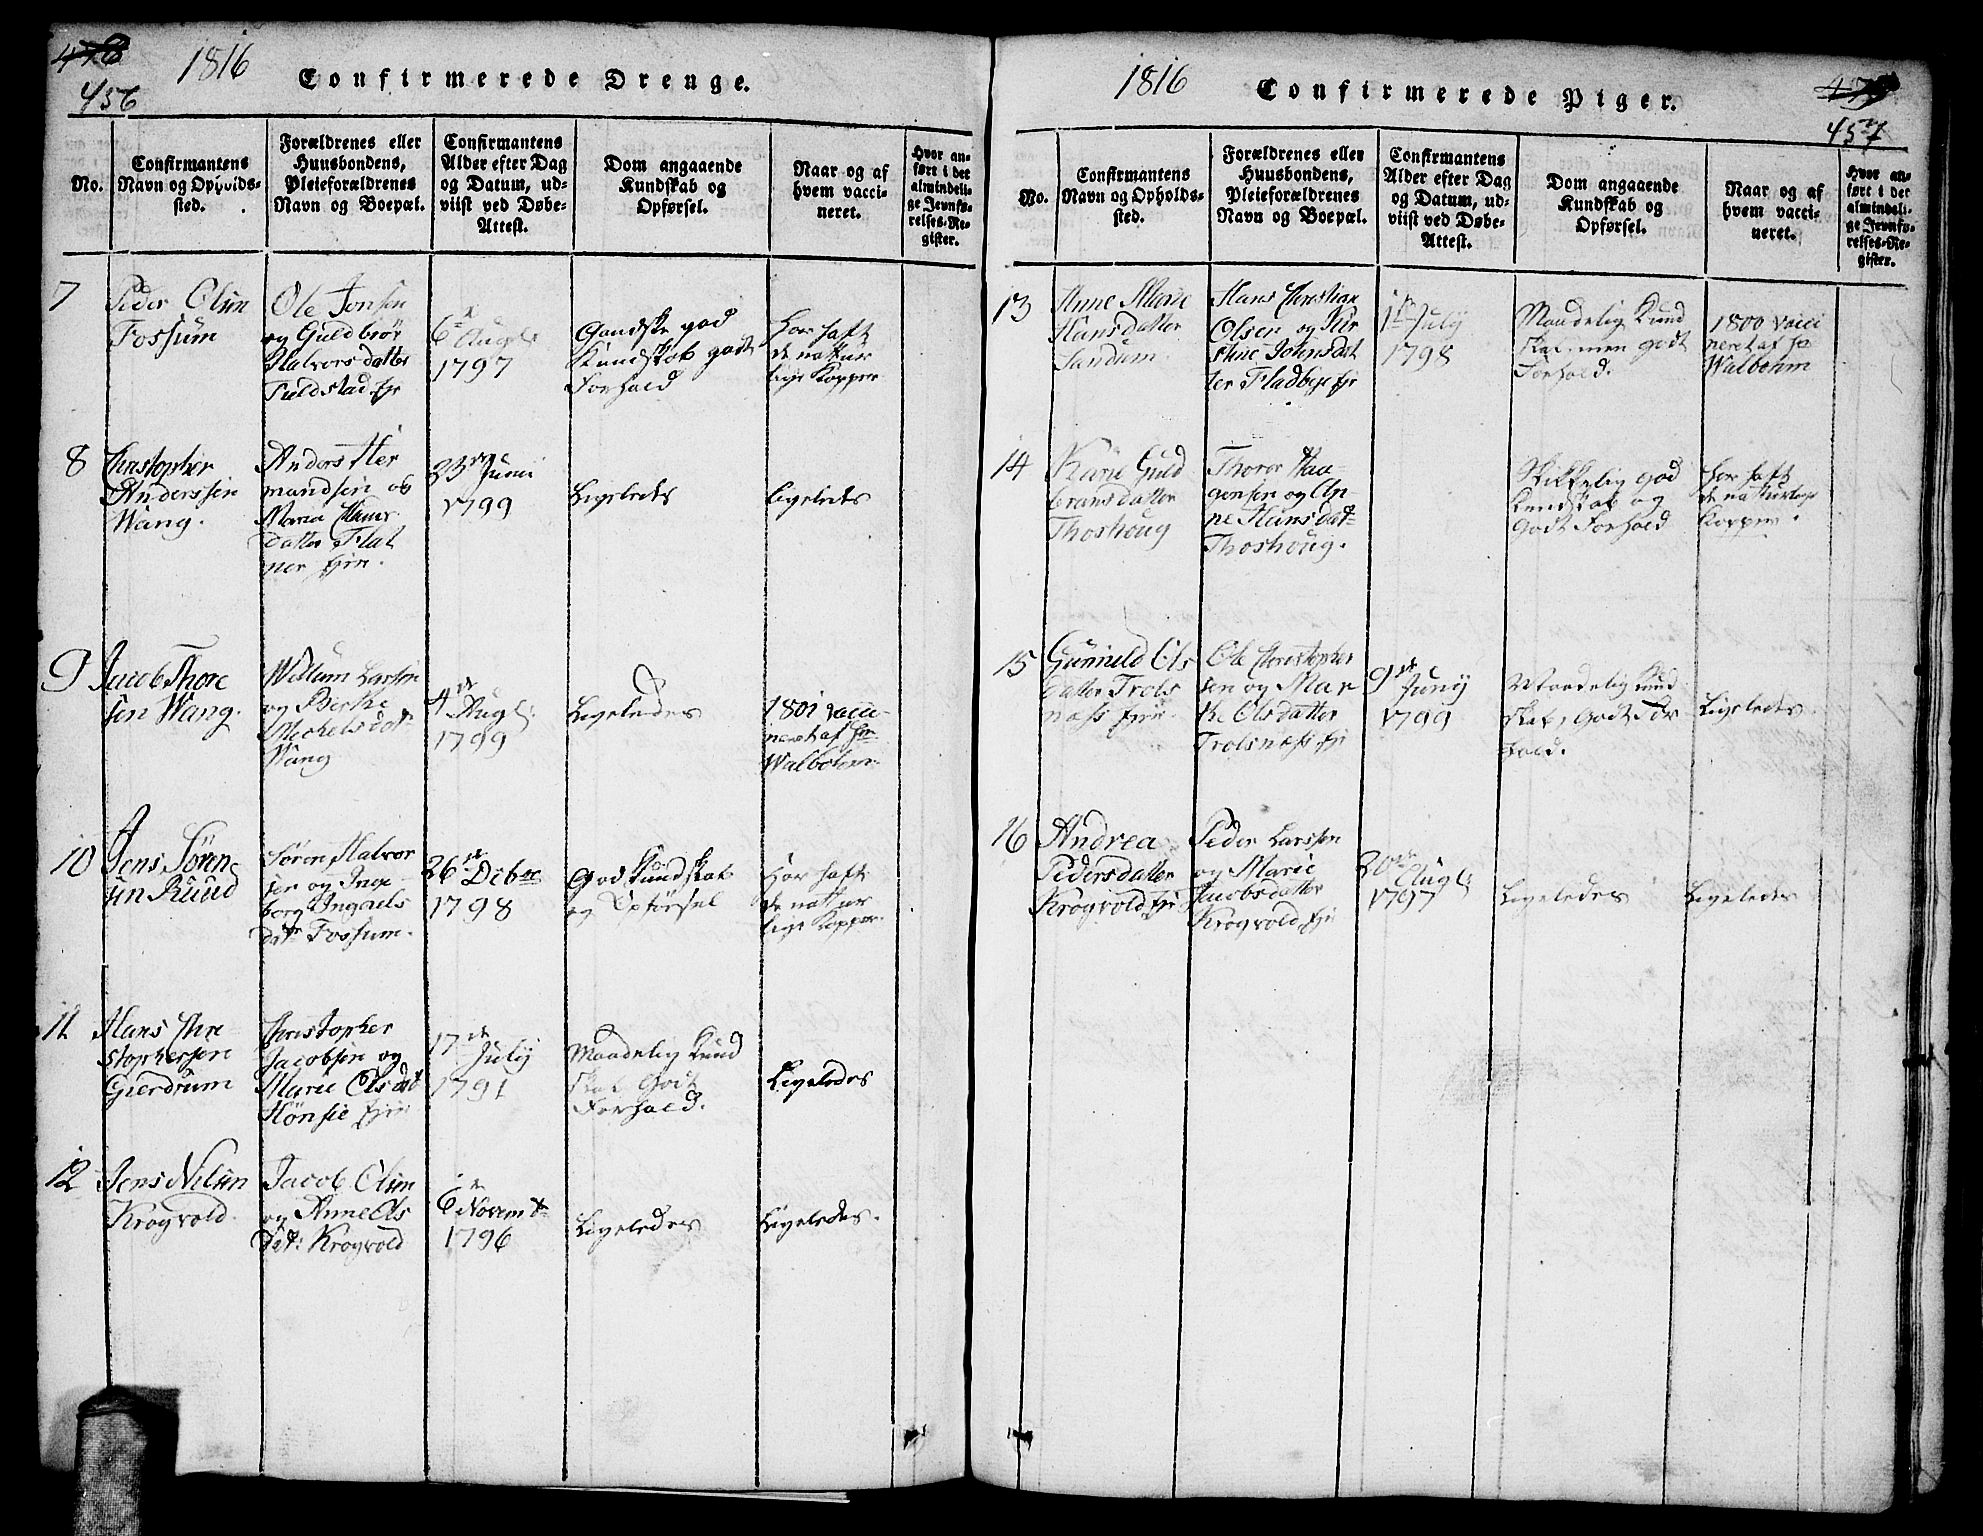 478
456
1816
Confirmerede Drenge.
No.
Confirmantens
Navn og Opholds-
sted.
Forældrenes eller
Huusbondens,
Pleieforældrenes
Navn og Boepæl.
Confirmantens
Alder efter Dag
og Datum, ud-
viist ved Døbe-
Attest.
Dom angaaende
Kundskab og
Opførsel.
Naar og af
hvem vacci-
neret.
Hvor an-
ført i det
almindeli-
ge Jevnfø-
relses-Re-
gister.
7
Peder Olsen
Fossum
Ole Jonsen
og Guldbrør
Halvorsdatter
Fuldstad
6te Aug
1797
Gandske god
Kundskab godt
Forhold
Har haft
de natur
lige Kopper
8
Christopher
Anderssen
Wang.
Anders Her
mandsen og
Maria Hans
datter Flat
ner
23de Juni
1799
Ligeledes
Ligeledes
9
Jacob Thore
sen Wang.
Willum Larsen
og Berthe
Mickelsdat
Wang
4de Aug
1799
Ligeledes
1801 vacci-
neret af Hr
Walbohm
10
Jens Søren
sen Ruud
Søren Halvor
sen og Inge
borg Ingvels
dat Fossum.
26de Debr
1798
God Kundskab
og Opførsel
Har haft
de natur
lige Kopper
11
Hans Chri
stophersen
Gierdrum
Christopher
Jacobsen og
Marie Olsdat
Hønsie
17de July
1791
Maadelig Kund
skab Godt
Forhold.
Ligeledes
12
Jens Nilsen
Krogvold.
Jacob Olsen
og Anne Ols
dat: Krogvold
6te Novem
1796
Ligeledes
Ligeledes.
1816
Confirmerede Piger.
479
457
No.
Confirmantens
Navn og Opholds-
sted.
Forældrenes eller
Huusbondens,
Pleieforældrenes
Navn og Boepæl.
Confirmantens
Alder efter Dag
og Datum, ud-
viist ved Døbe-
Attest.
Dom angaaende
Kundskab og
Opførsel.
Naar og af
hvem vacci-
neret.
Hvor an-
ført i det
almindeli-
ge Jevnfø-
relses-Re-
gister.
13
Anne Marie
Hansdatter
Sandum
Hans Christian
Olsen og Kir
stine Johnsdat
ter Fladbye
1te July
1798
Maadelig Kund
skab, men godt
Forhold.
1800 vacci
neret af Hr
Walbohm
14
Karie Guld
bransdatter
Thoshoug
Thoror Haa-
gensen og An
ne Hansdat
Thoshoug.
Skikkelig god
Kundskab og
Godt Forhold
Har haft
de naturlige
Kopper.
15
Gunnild Ols
datter Trols
næss
Ole Christopher
sen og Mar
the Olsdatter
Trolsnæss
9de Juny
1799
Maadelig Kund
skab, Godt For
hold.
Ligeledes
16
Andrea
Pedersdatter
Krogvold
Peder Larssen
og Marie
Jacobsdatter
Krogvold
20de Aug
1797
Ligeledes
Ligeledes